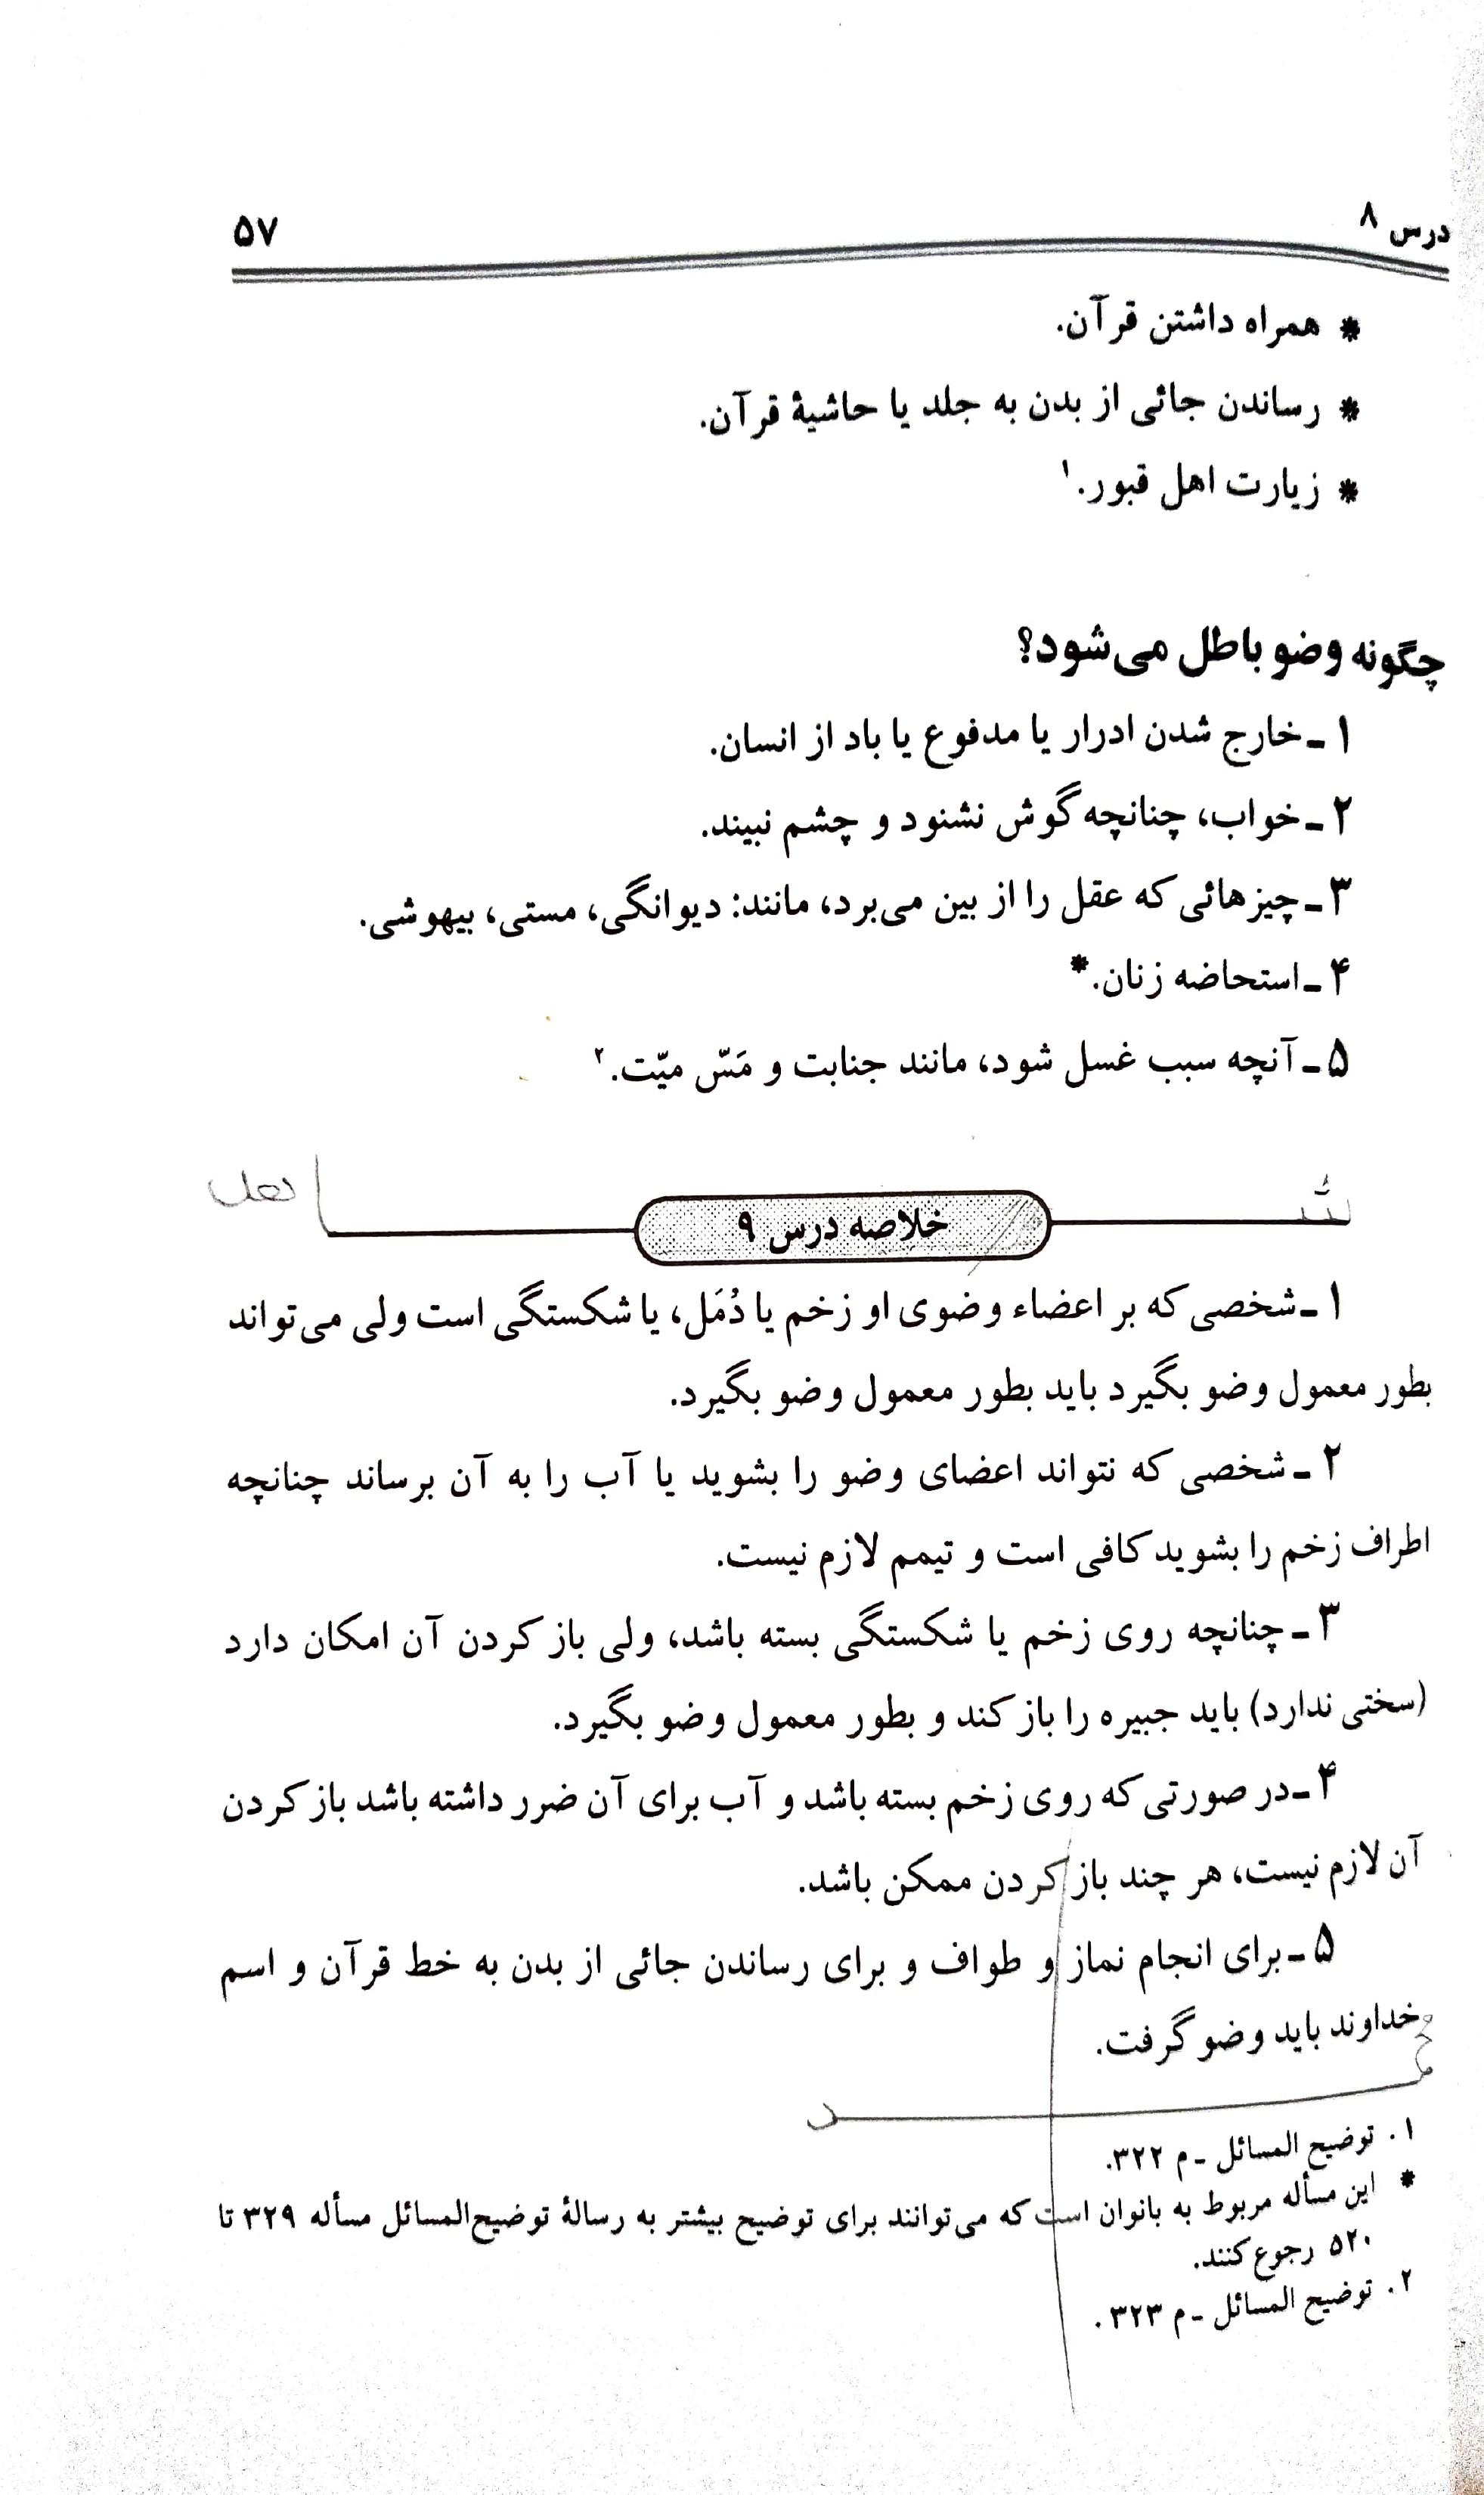 درس ۸
۵۷
* همراه داشتن قرآن.
* رساندن جائی از بدن به جلد یا حاشیهٔ قرآن.
* زیارت اهل قبور.۱
چگونه وضو باطل می‌شود؟
۱ـ خارج شدن ادرار یا مدفوع یا باد از انسان.
۲ـ خواب، چنانچه گوش نشنود و چشم نبیند.
۳ـ چیزهائی که عقل را از بین می‌برد، مانند: دیوانگی، مستی، بیهوشی.
۴ـ استحاضه زنان.*
۵ـ آنچه سبب غسل شود، مانند جنابت و مَسّ میّت.۲
خلاصه درس ۹
۱ـ شخصی که بر اعضاء وضوی او زخم یا دُمَل، یا شکستگی است ولی می‌تواند
بطور معمول وضو بگیرد باید بطور معمول وضو بگیرد.
۲ـ شخصی که نتواند اعضای وضو را بشوید یا آب را به آن برساند چنانچه
اطراف زخم را بشوید کافی است و تیمم لازم نیست.
۳ـ چنانچه روی زخم یا شکستگی بسته باشد، ولی باز کردن آن امکان دارد
(سختی ندارد) باید جبیره را باز کند و بطور معمول وضو بگیرد.
۴ـ در صورتی که روی زخم بسته باشد و آب برای آن ضرر داشته باشد باز کردن
آن لازم نیست، هر چند باز کردن ممکن باشد.
۵ـ برای انجام نماز و طواف و برای رساندن جائی از بدن به خط قرآن و اسم
خداوند باید وضو گرفت.
۱. توضیح المسائل ـ م ۳۲۲.
* این مسأله مربوط به بانوان است که می‌توانند برای توضیح بیشتر به رسالهٔ توضیح‌المسائل مسأله ۳۲۹ تا
۵۲۰ رجوع کنند.
۲. توضیح المسائل ـ م ۳۲۳.